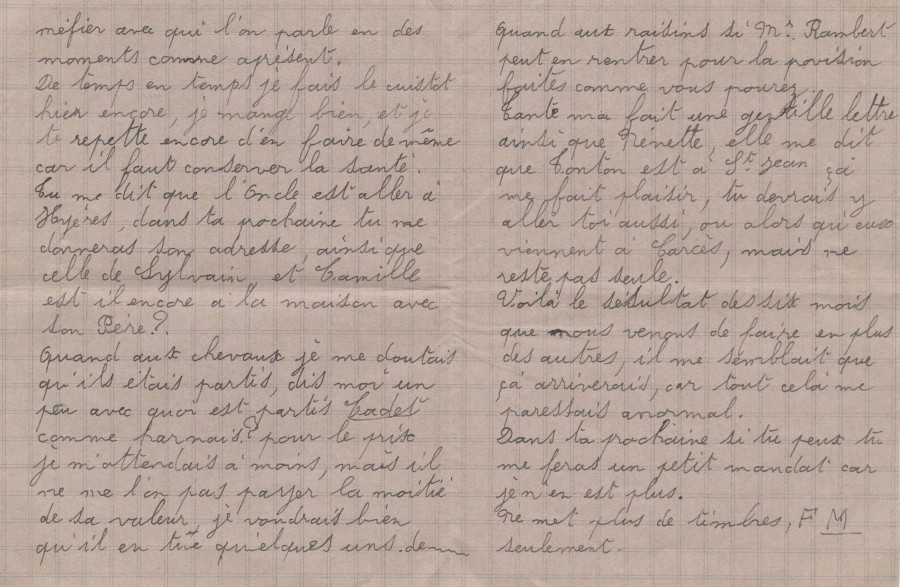 méfier avec qui l'on parle en des
moments comme aprésent.
De temps en temps je fais le cuistot
hier encore, je mange bien, et je
te repette encore d'en faire de même
car il faut conserver la santé.
Tu me dit que l'Oncle est aller à
Hyères, dans ta prochaine tu me
donneras son adresse, ainsi que
celle de Sylvain, et Camille
est il encore à la maison avec
son Père?.
Quand aux chevaux je me doutais
qu'ils etais partis, dis moi un
peu avec quoi est partis Cadet
comme harnais? pour le prix
je m'attendais à moins, mais il
ne me l'on pas payer la moitié
de sa valeur, je voudrais bien
qu'il en tue quelques uns. de
Quand aux raisins si Mr. Rambert
peut en rentrer pour la povision
faites comme vous pourez,
Tante ma fait une gentille lettre
ainsi que Nénette, elle me dit
que Tonton est à St Jean çà
me fait plaisir, tu devrais y
aller toi aussi, ou alors qu'eux
viennent à Carcès, mais ne
reste pas seule.
Voilà le résultat des six mois
que nous venons de faire en plus
des autres, il me semblait que
çà arriverais, car tout celà me
paressais anormal.
Dans ta prochaine si tu peux tu
me feras un petit mandat car
je n'en est plus.
Ne met plus de timbres, F M
seulement.